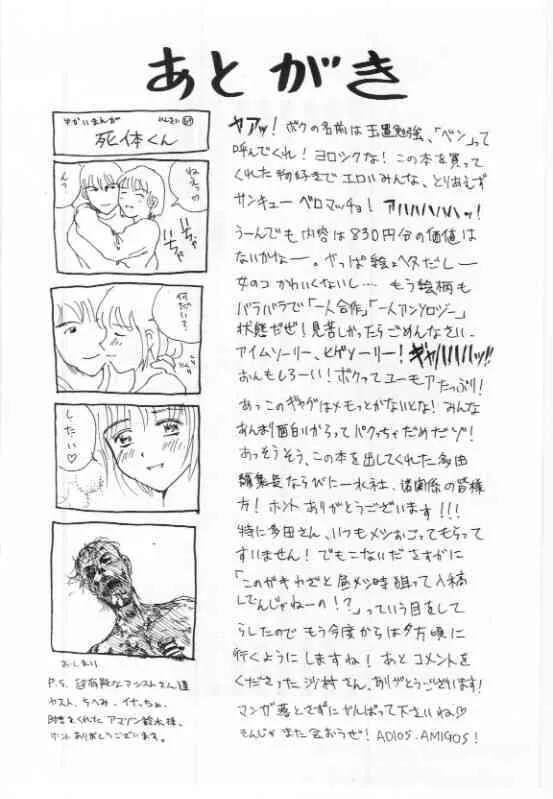 あとがき
ゆかいまんが
死体くん
ねえっ
んっ
いちゃ
いちゃ
何だい?
したい♡
おしまい
P.S. 超有能なアシスタントさん達
ヤスト、ちへみ、イナっちゃ、
時をくれたアマゾン鈴木様、
ホントありがとうございます。
ヤアッ! ボクの名前は玉置勉強、「ベン」って
呼んでくれ! ヨロシクな! この本を買って
くれた物好きでエロいみんな、とりあえず
サンキューベロマッチョ! アハハハハハッ!
うーんでも内容は830円分の価値は
ないかなー。やっぱ絵もヘタだしー
女のコかわいくないし…もう絵柄も
バラバラで「一人合作」「一人アンソロジー」
状態だぜ! 見苦しかったらごめんなさい、
アイムソーリー、ヒゲソーリー! ギャハハハハッ!!
おんもしろーい! ボクってユーモアたっぷり!
あっこのギャグはメモっとかないとな! みんな
あんまり面白いからってパクっちゃだめだゾ!
あっそうそう、この本を出してくれた多田
編集長ならびに一水社、諸関係の皆様
方! ホントありがとうございます!!!
特に多田さん、いつもメシおごってもらって
すいません! でもこないださすがに
「このガキわざと昼メシ時狙って入稿
してんじゃねーの!?」っていう目をして
らしたのでもう今度からは夕方頃に
行くようにしますね! あとコメントを
くださった沙村さん、ありがとうございます!
マンガ落とさずにがんばって下さいね♡
そんじゃまた会おうぜ! ADIOS.AMIGOS!